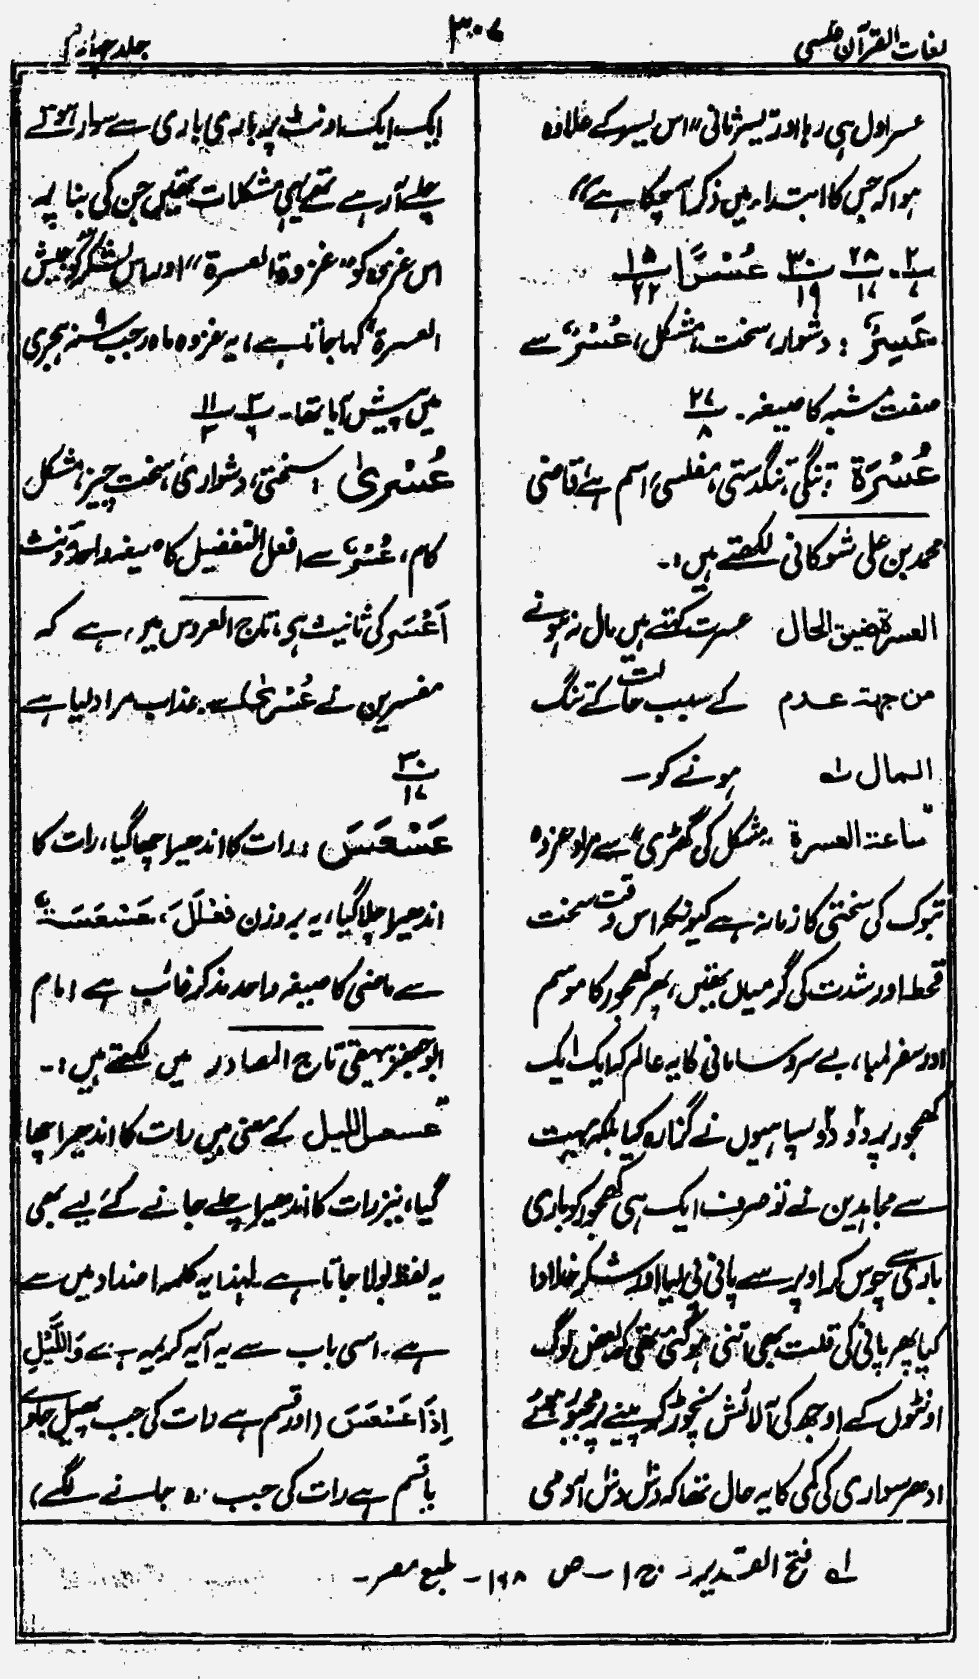 لغات القرآن
۳۰۷
جلد چہارم
عسر اول ہی رہا اور یسر ثانی" اس یسر کے علاوہ
ہوا کہ جس کا ابتداء میں ذکر آ چکا ہے"
۲/۷ ۲۸/۱۷ ۳۰/۱۹ عُسْرًا ۱۵/۲۲
عَسِیْرٌ: دشوار، سخت، مشکل، عُسْرٌ سے
صفت مشبہ کا صیغہ۔ ۲۷/۸
عُسْرَۃ: تنگی، تنگدستی، مفلسی، اسم ہے قاضی
محمد بن علی شوکانی لکھتے ہیں:۔
العسرۃ ضیق الحال عسرت کہتے ہیں مال نہ ہونے
من جہۃ عدم کے سبب حالت کے تنگ
المال لہ ہونے کو۔
ساعۃ العسرۃ "مشکل کی گھڑی" سے مراد غزوہ
تبوک کی سختی کا زمانہ ہے کیونکہ اس وقت سخت
قحط اور شدت کی گرمیاں تھیں، پھر کھجور کا موسم
اور سفر لمبا، بے سروسامانی کا یہ عالم کہ ایک ایک
کھجور پر دو دو سپاہیوں نے گذارہ کیا بلکہ بہت
سے مجاہدین نے تو صرف ایک ہی کھجور کو باری
باری سے چوس کر اوپر سے پانی پی لیا اور شکر خدا ادا
کیا پھر پانی کی قلت بھی اتنی ہو گئی تھی کہ بعض لوگ
اونٹوں کے اوجھ کی آلائش نچوڑ کر پینے پر مجبور ہوئے
ادھر سواری کی کمی کا یہ حال تھا کہ دس دس آدمی
ایک ایک اونٹ پر باری باری سے سوار ہوتے
چلے آ رہے تھے یہی مشکلات تھیں جن کی بنا پر
اس غزوہ کو "غزوۃ العسرۃ" اور اس لشکر کو "جیش
العسرۃ" کہا جاتا ہے، یہ غزوہ ماہ رجب ۹ سنہ ہجری
میں پیش آیا تھا۔ ۳/۶ ۱۱/۳
عُسْریٰ: سختی، دشواری، سخت چیز، مشکل
کام، عُسْرٌ سے افعل التفضیل کا صیغہ واحد مؤنث
اَعْسَر کی تانیث ہے، تاج العروس میں ہے کہ
مفسرین نے عُسْریٰ سے عذاب مراد لیا ہے
۳۰/۱۷
عَسْعَسَ: رات کا اندھیرا چھا گیا، رات کا
اندھیرا چلا گیا، یہ بروزن فَعْلَلَ، عَسْعَسَۃٌ
سے ماضی کا صیغہ واحد مذکر غائب ہے امام
ابو جعفر بیہقی تاج المصادر میں لکھتے ہیں:۔
"عسعس اللیل کے معنی ہیں رات کا اندھیرا چھا
گیا، نیز رات کا اندھیرا چلے جانے کے لیے بھی
یہ لفظ بولا جاتا ہے لہٰذا یہ کلمہ اضداد میں سے
ہے۔ اسی باب سے یہ آیہ کریمہ ہے وَاللَّیْلِ
اِذَا عَسْعَسَ (اور قسم ہے رات کی جب پھیل جاوے
یا قسم ہے رات کی جب وہ جانے لگے)
لہ فتح القدیر۔ ج ۱ ۔ ص ۱۶۸ ۔ طبع مصر۔